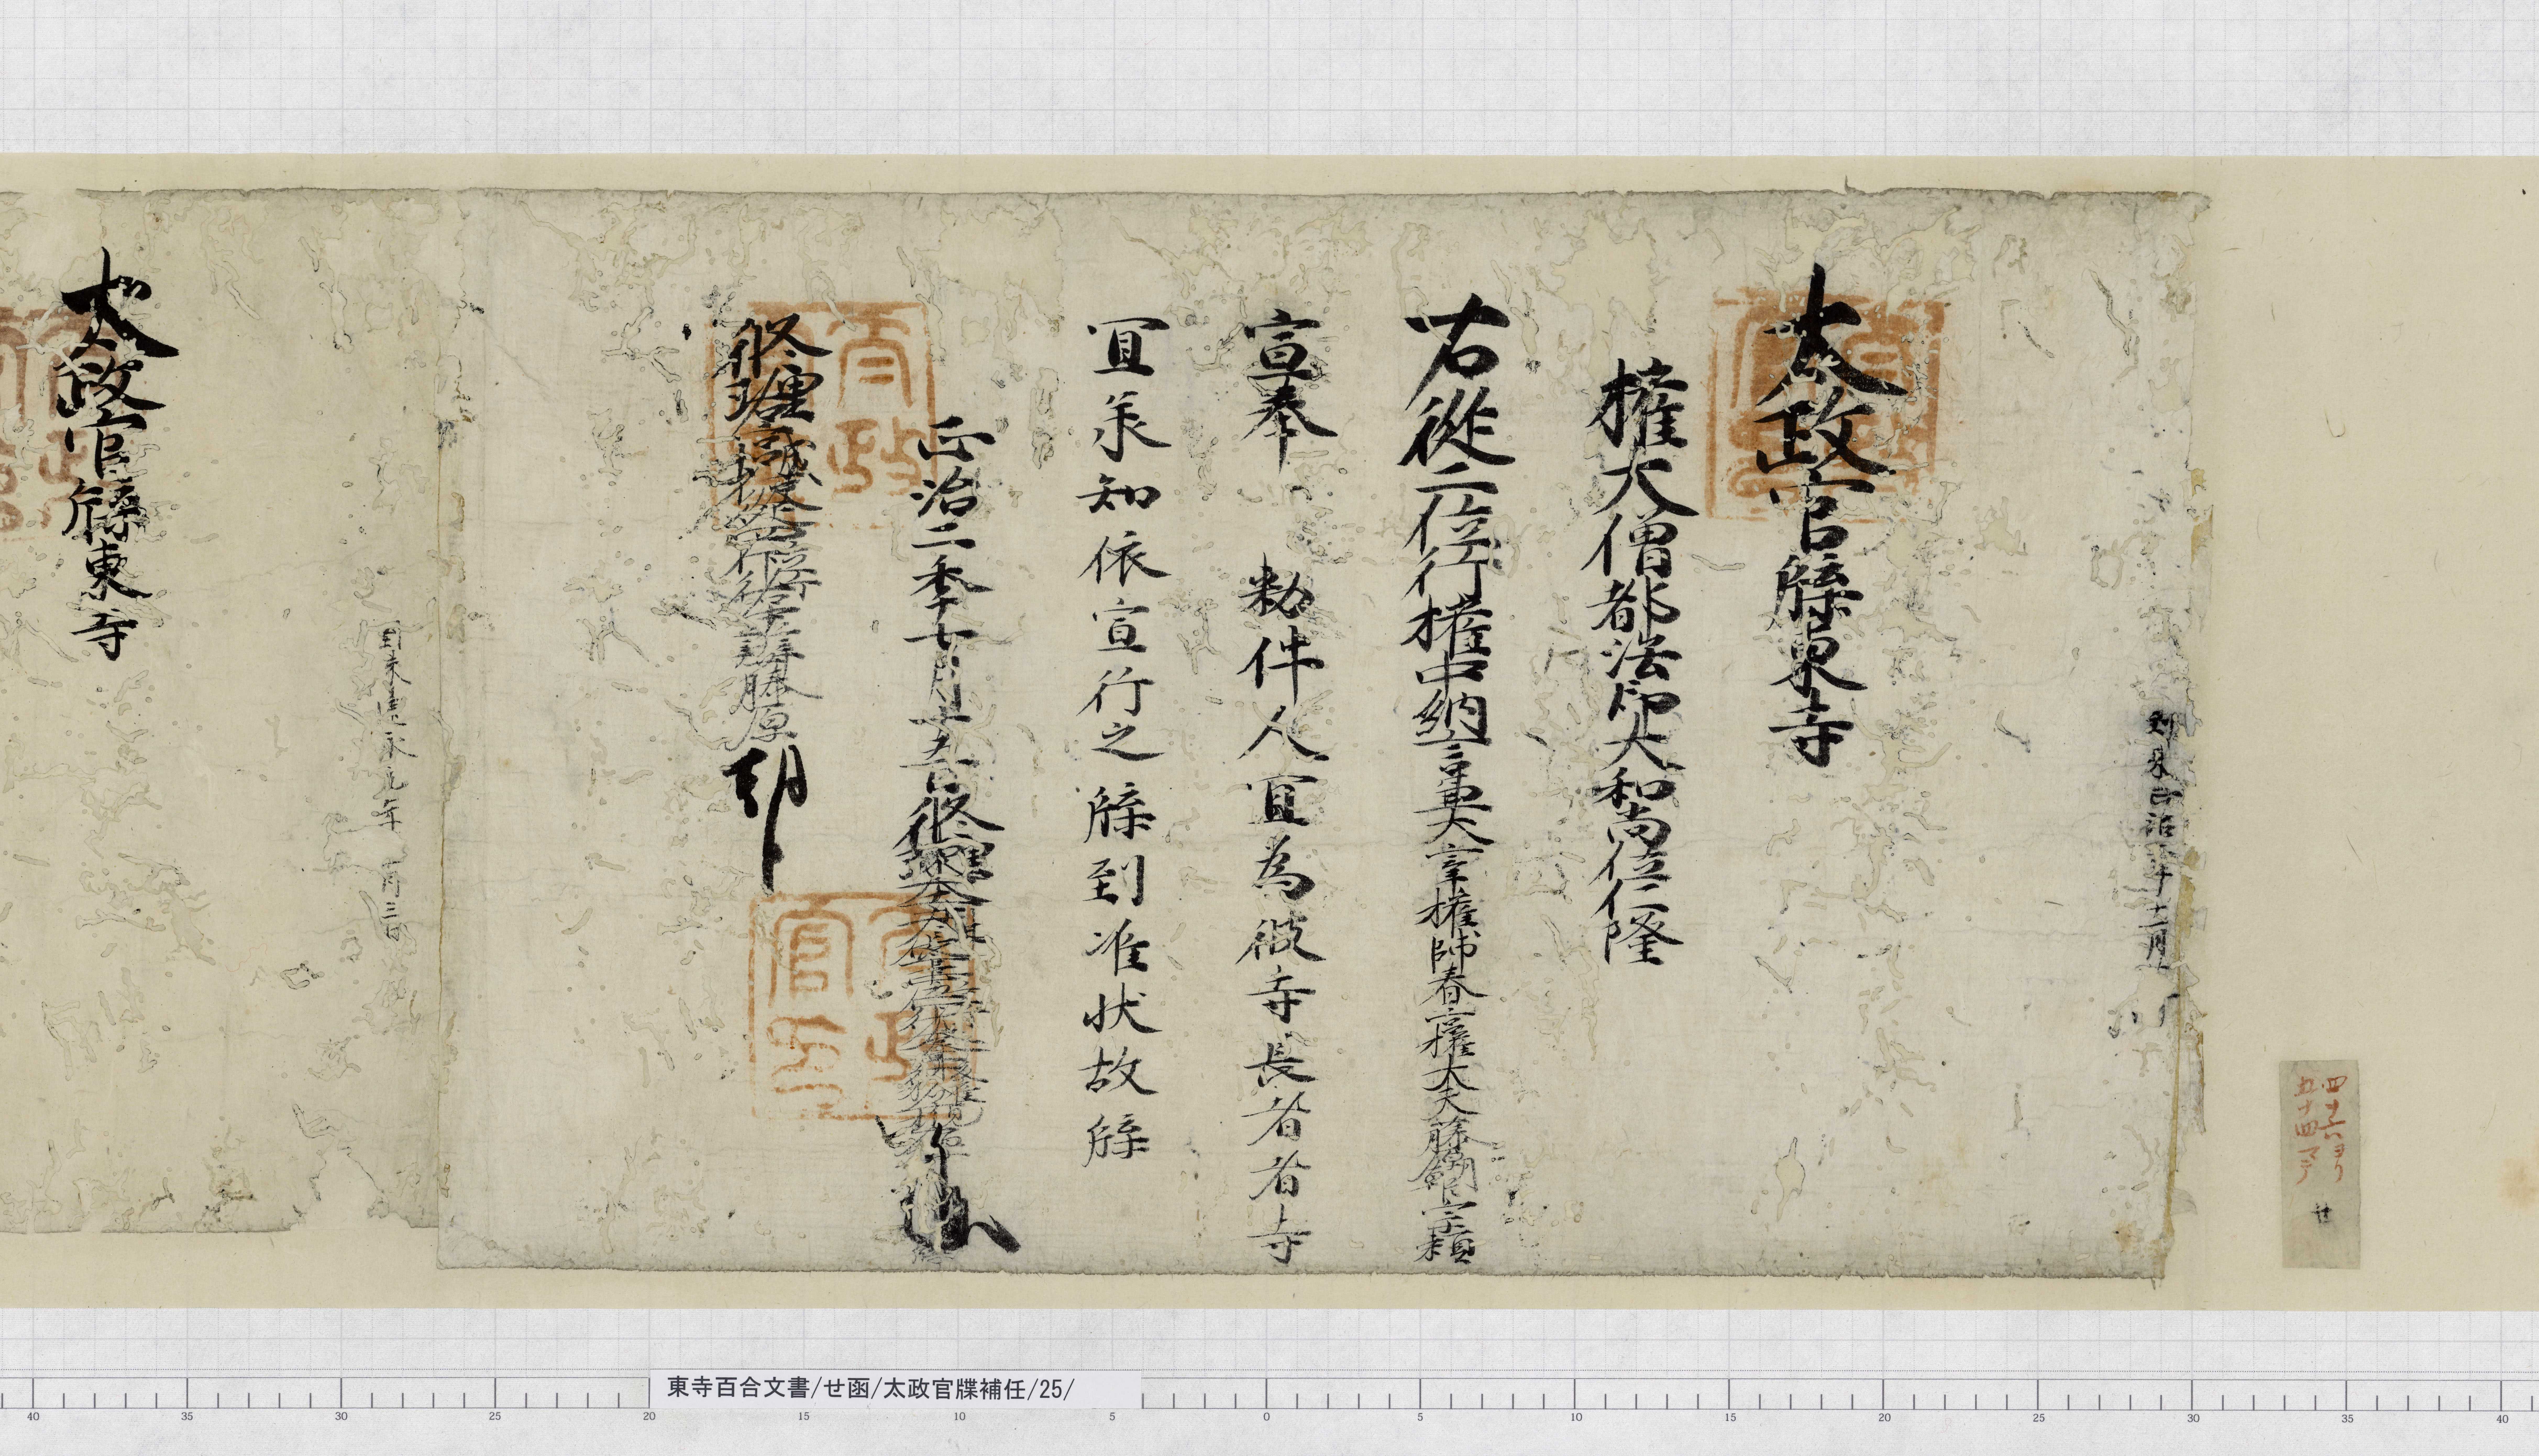 四十六ヨリ
五十四マテ
せ
到来正治二年十二月
太政官牒東寺
権大僧都法印大和尚位仁隆
右従二位行権中納言兼大宰権帥春宮権大夫藤原朝臣宗頼
宣奉 勅件人宜為彼寺長者者寺
宜承知依宣行之牒到准状故牒
正治二季十
修理
藤原朝
到来
元年 月三日
太政官牒東寺
東寺百合文書/せ函/太政官牒補任/25/
40 35 30 25 20 15 10 5 0 5 10 15 20 25 30 35 40